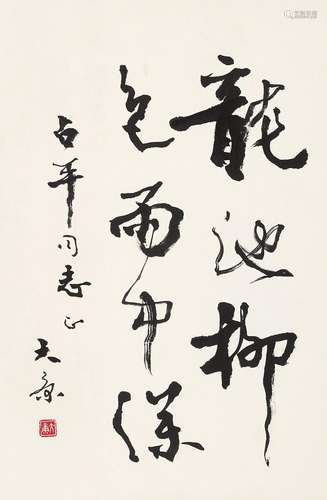 龍池柳
色雨中深
占平同志正
大康